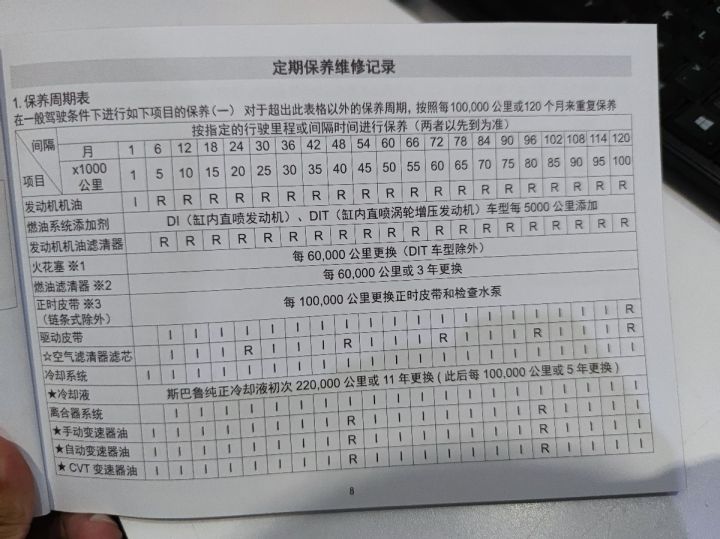 定期保养维修记录
1. 保养周期表
在一般驾驶条件下进行如下项目的保养(一) 对于超出此表格以外的保养周期，按照每100,000 公里或120 个月来重复保养
间隔 按指定的行驶里程或间隔时间进行保养（两者以先到为准）
月 1 6 12 18 24 30 36 42 48 54 60 66 72 78 84 90 96 102 108 114 120
项目 x1000 公里 1 5 10 15 20 25 30 35 40 45 50 55 60 65 70 75 80 85 90 95 100
发动机机油 I R R R R R R R R R R R R R R R R R R R R
燃油系统添加剂 DI（缸内直喷发动机）、DIT（缸内直喷涡轮增压发动机）车型每 5000 公里添加
发动机机油滤清器 R R R R R R R R R R R R R R R R R R R R
火花塞 ※1 每 60,000 公里更换（DIT 车型除外）
燃油滤清器 ※2 每 60,000 公里或 3 年更换
正时皮带 ※3 每 100,000 公里更换正时皮带和检查水泵
（链条式除外）
驱动皮带 I I I I I I I I I I I I I I I I I I I R
☆空气滤清器滤芯 I I I R I I I R I I I R I I I R I I I R
冷却系统 I I I I I I I I I I I I I I I I I I I I I
★冷却液 斯巴鲁纯正冷却液初次 220,000 公里或 11 年更换 ( 此后每 100,000 公里或 5 年更换 )
离合器系统 I I I I I I I I I I I I I I I I I I I I
★手动变速器油 I I I I I I I I R I I I I I I I R I I I I
★自动变速器油 I I I I I I I I R I I I I I I I R I I I I
★ CVT 变速器油 I I I I I I I I R I I I I I I I R I I I I
8